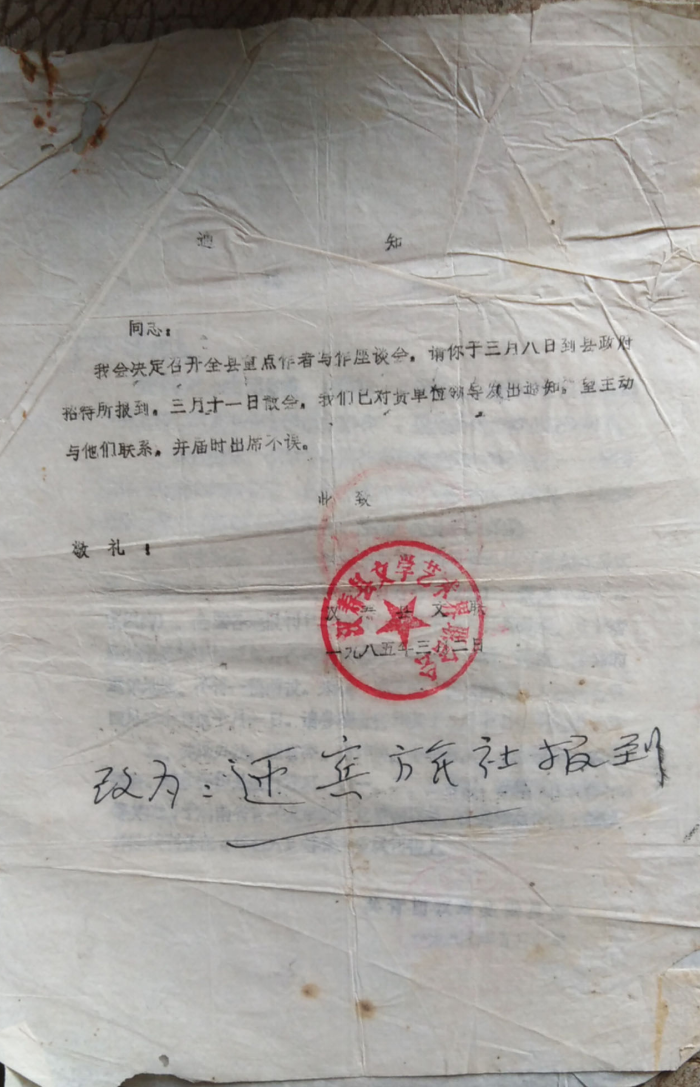 通 知
同志：
我会决定召开全县重点作者写作座谈会，请你于三月八日到县政府
招待所报到，三月十一日散会，我们已对贵单位领导发出通知，望主动
与他们联系，并届时出席不误。
此 致
敬 礼！
县文学艺术界联合会
文联
一九八五年三月二日
改为：迎宾旅社报到